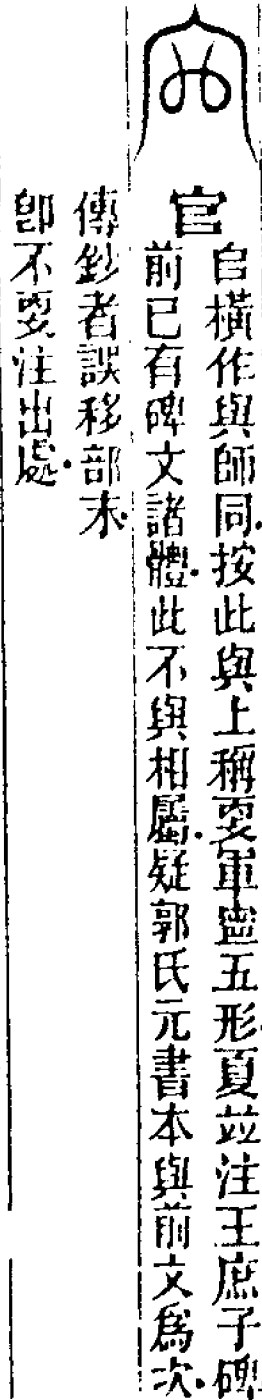 官
𠂤橫作與師同.按此與上稱軍五形夏竝注王庶子碑
前已有碑文諸體.此不與相屬.疑郭氏元書本與前文爲次.
傳鈔者誤移部末.
卽不注出處.